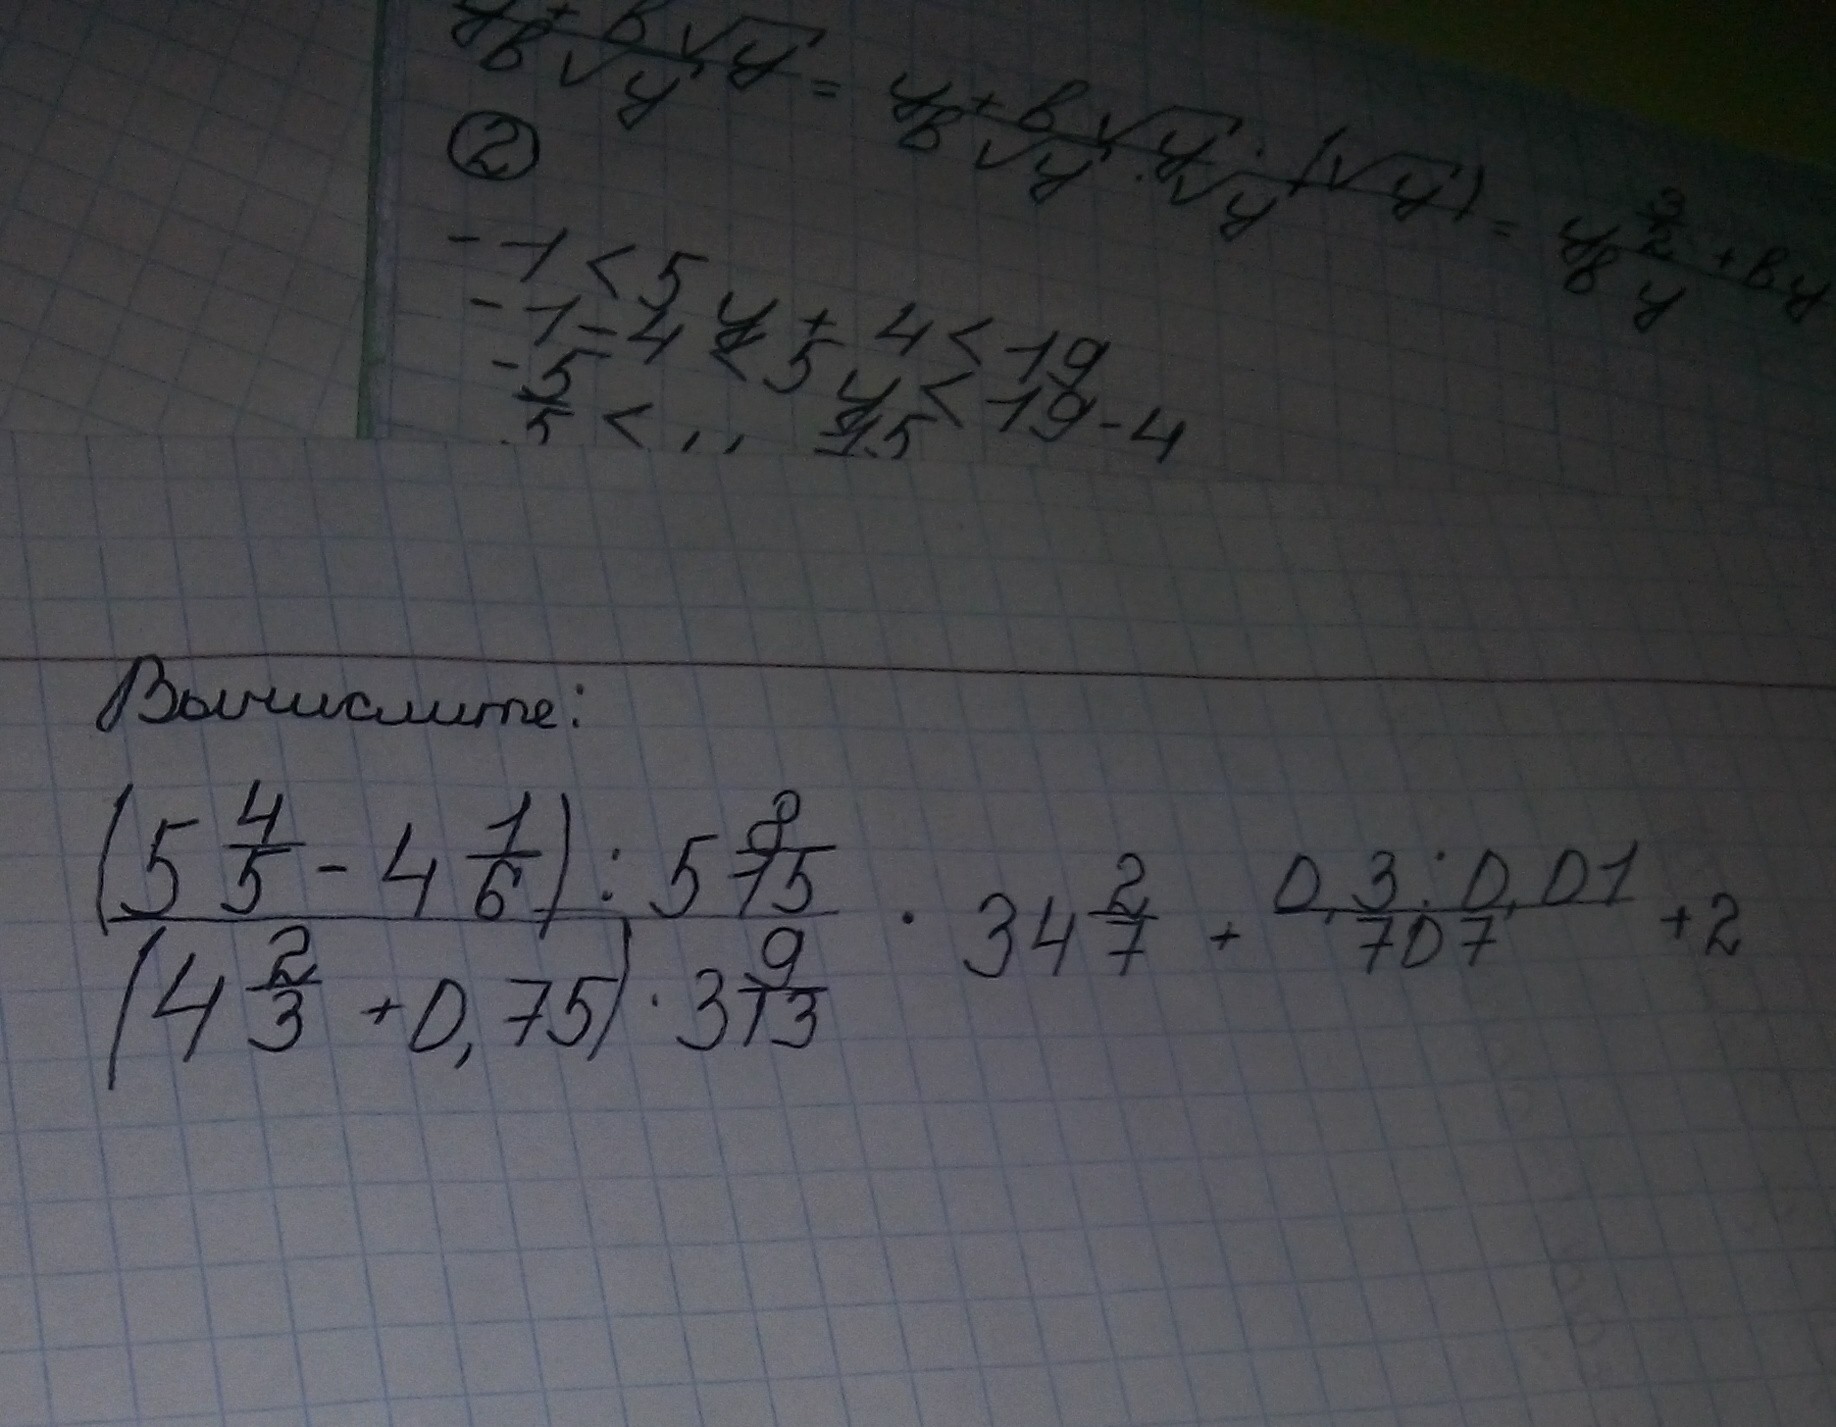 y + b√y / b√y = y + b√y · (√y) / b√y · √y = y^(3/2) + by / by
②
-1 < 5y + 4 < 19
-1-4 < 5y < 19-4
Вычислите:
(5 4/5 - 4 1/6) : 5 8/15 / (4 2/3 + 0,75) · 3 9/13 · 34 2/7 + 0,3 : 0,01 / 707 + 2